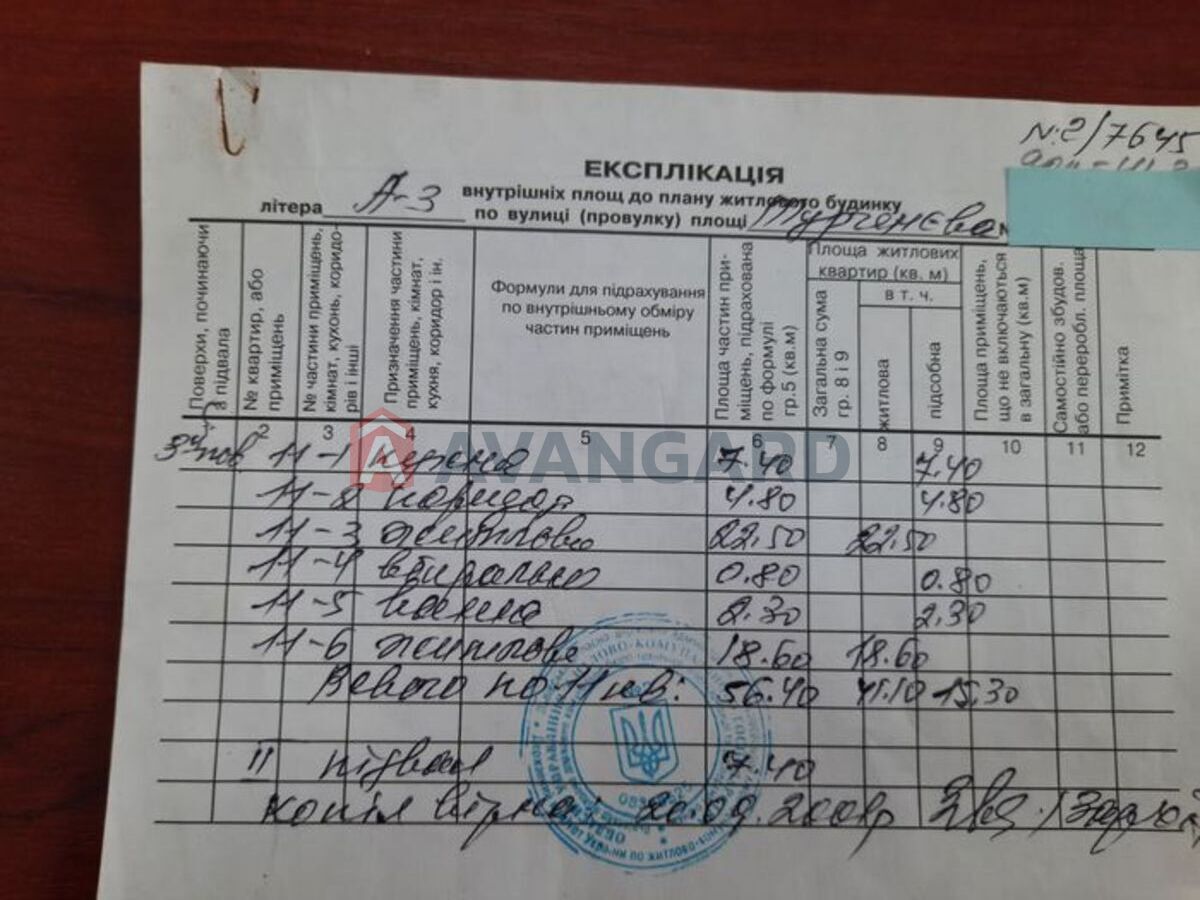 N:2/7645
ЕКСПЛІКАЦІЯ
внутрішніх площ до плану житлового будинку
літера А-3 по вулиці (провулку) площі Тургенєва №
Поверхи, починаючи з підвала
№ квартир, або приміщень
№ частини приміщень, кімнат, кухонь, коридорів і інші
Призначення частини приміщень, кімнат, кухня, коридор і ін.
Формули для підрахування по внутрішньому обміру частин приміщень
Площа частин приміщень, підрахована по формулі гр.5 (кв.м)
Площа житлових квартир (кв. м)
Загальна сума гр. 8 і 9
в т. ч.
житлова
підсобна
Площа приміщень, що не включаються в загальну (кв.м)
Самостійно збудов. або переробл. площа
Примітка
2 3 4 5 6 7 8 9 10 11 12
3й пов. 11-1 кухня 7.40 7.40
11-2 коридор 4.80 4.80
11-3 житлова 22.50 22.50
11-4 вбиральня 0.80 0.80
11-5 ванна 2.30 2.30
11-6 житлова 18.60 18.60
Всього по 11 кв: 56.40 41.10 15.30
II підвал 7.40
копія вірна: 20.09.2001р
AVANGARD